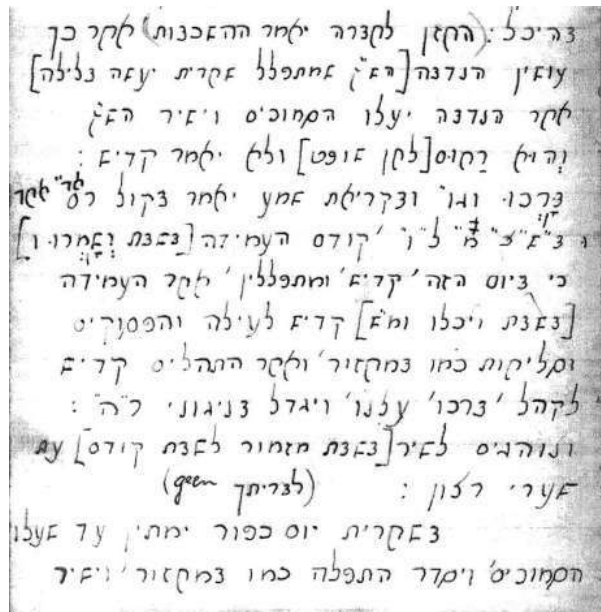 בהיכל: (החזן לחברה יאמר ההשכבות) אחר כך
עושין הנדבה [הש"ץ שמתפלל שחרית יעשה בלילה]
אחר הנדבה יעלו הסמוכים וישיר הש"ץ
וְהוּא רַחוּם [לחן שופט] ולא יאמר קדיש :
בָּרכו וגו' ובקריאת שמע יאמר בקול רם אחר
ב"ש"כ"מ"ל"ו' קודם העמידה [בשבת וְשָׁמרו ו]
כי ביום הזה' קדיש' ומתפללין' אחר העמידה
[בשבת ויכלו ומ"ש] קדיש לעילה והפסוקים
וסליחות כמו במחזור' ואחר התהלים קדיש
לקהל' ברכו' עלנו' ויגדל בניגוני ר"ה :
ונוהגים לשיר [בשבת מזמור לשבת קודם] עת
שערי רצון : (geen
בשחרית יום כפור ימתין עד שעלו
הסמוכים' ויסדר התפלה כמו במחזור' וישיר